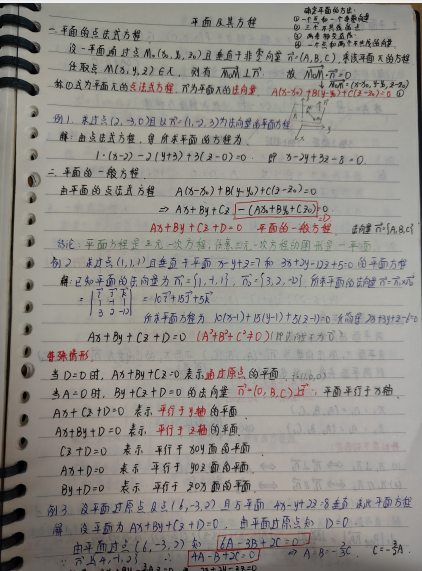 平面及其方程
确定平面的方法:
① 一个点和一个非零向量
② 三个不共线的点
③ 两条相交直线
④ 一个点和两个不共线的向量
一.平面的点法式方程
设一平面通过点M₀(x₀,y₀,z₀)且垂直于非零向量n⃗=(A,B,C),求该平面π的方程
任取点M(x,y,z)∈π, 则有 M₀M⊥n⃗ 故 M₀M·n⃗=0
M₀M=(x-x₀,y-y₀,z-z₀)
称①式为平面π的点法式方程, n⃗为平面π的法向量 A(x-x₀)+B(y-y₀)+C(z-z₀)=0 ①
例1. 求过点(2,-3,0)且以n⃗=(1,-2,3)为法向量的平面方程
解:由点法式方程,得所求平面的方程为
1·(x-2)-2(y+3)+3(z-0)=0. 即 x-2y+3z-8=0.
二.平面的一般方程.
由平面的点法式方程 A(x-x₀)+B(y-y₀)+C(z-z₀)=0
⇒ Ax+By+Cz-(Ax₀+By₀+Cz₀)=0
=D
Ax+By+Cz+D=0 平面的一般方程. 法向量n⃗={A,B,C}
结论:平面方程是三元一次方程,任意三元一次方程的图形是一平面
例2. 求过点(1,1,1)且垂直于平面x-y+z=7和3x+2y-12z+5=0的平面方程
解:已知平面的法向量为n₁={1,-1,1}, n₂={3,2,-12}, 所求平面的法向量n⃗=n₁×n₂
=10i⃗+15j⃗+5k⃗
所求平面方程为 10(x-1)+15(y-1)+5(z-1)=0 化简得2x+3y+z-6=0
Ax+By+Cz+D=0 (A²+B²+C²≠0)
特殊情形
当D=0时, Ax+By+Cz=0 表示通过原点的平面
当A=0时, By+Cz+D=0 的法向量 n⃗=(0,B,C)⊥i⃗, 平面平行于x轴.
Ax+Cz+D=0 表示平行于y轴的平面
Ax+By+D=0 表示平行于z轴的平面.
Cz+D=0 表示 平行于xoy面的平面
Ax+D=0 表示 平行于yoz面的平面
By+D=0 表示 平行于zox面的平面
例3. 设平面过原点及点(6,-3,2)且与平面4x-y+2z=8垂直,求此平面方程
解: 设平面为Ax+By+Cz+D=0, 由平面过原点知 D=0
由平面过点(6,-3,2)知 6A-3B+2C=0
∵ n⃗⊥{4,-1,2} ∴ 4A-B+2C=0 ⇒ A=B=-⅔C. C=-3/2A.